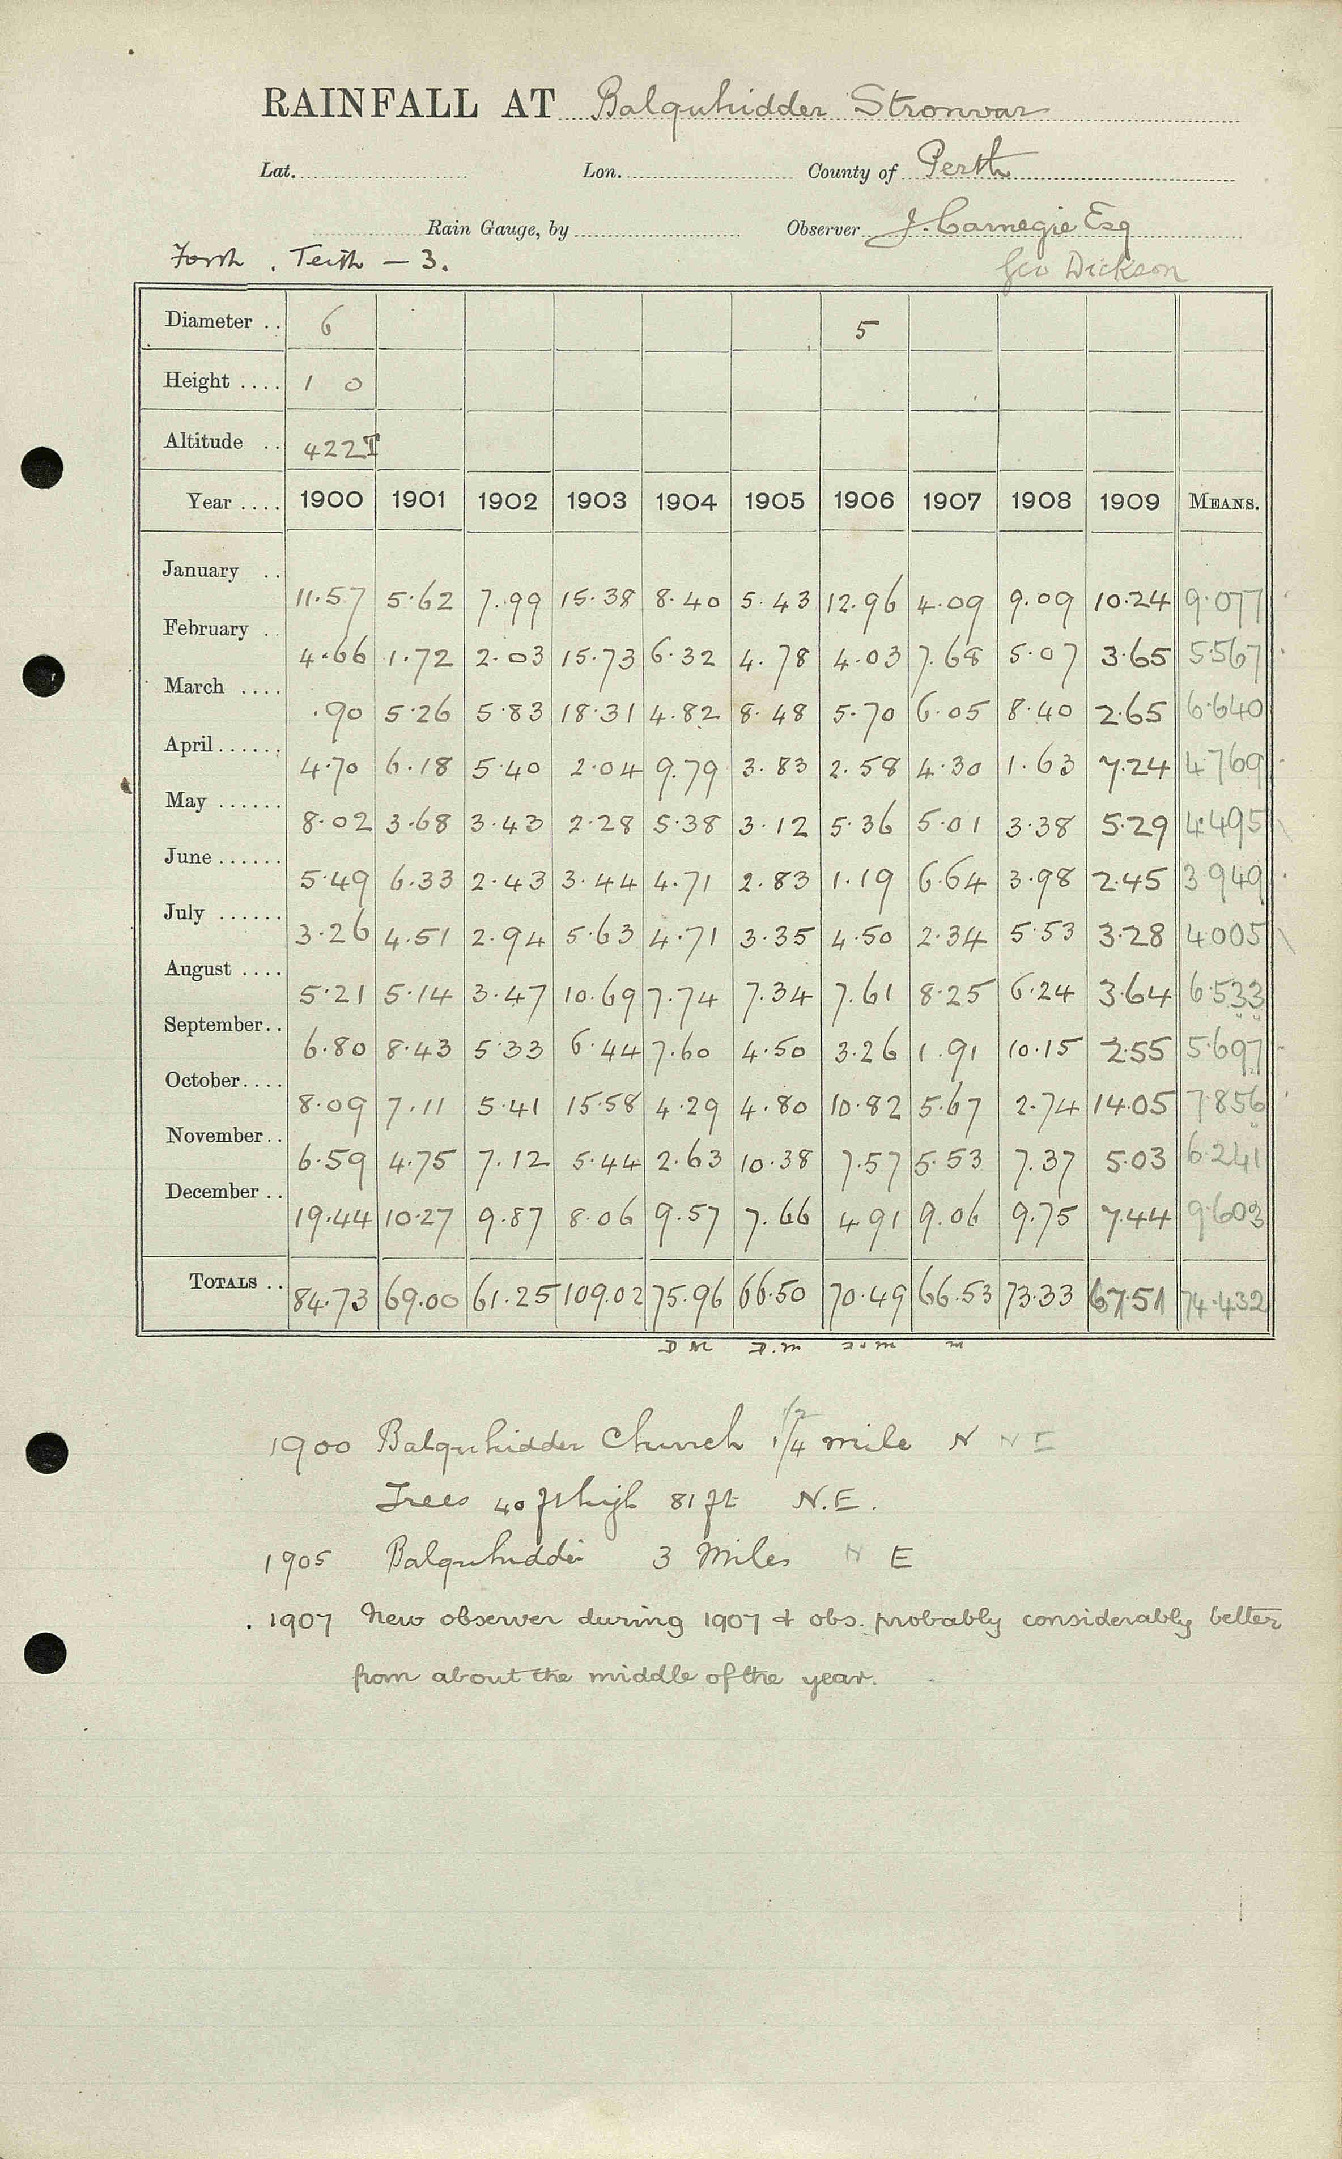 RAINFALL AT Balquhidder Stronvar
Lat. Lon. County of Perth
Rain Gauge, by Observer J. Carnegie Esq
Forth . Teith — 3. Geo Dickson
Diameter .. 6 5
Height .... 1 0
Altitude .. 422T
Year .... 1900 1901 1902 1903 1904 1905 1906 1907 1908 1909 MEANS.
January .. 11.57 5.62 7.99 15.38 8.40 5.43 12.96 4.09 9.09 10.24 9.077
February .. 4.66 1.72 2.03 15.73 6.32 4.78 4.03 7.68 5.07 3.65 5.567
March .... .90 5.26 5.83 18.31 4.82 8.48 5.70 6.05 8.40 2.65 6.640
April...... 4.70 6.18 5.40 2.04 9.79 3.83 2.58 4.30 1.63 7.24 4.769
May ...... 8.02 3.68 3.43 2.28 5.38 3.12 5.36 5.01 3.38 5.29 4.495
June ...... 5.49 6.33 2.43 3.44 4.71 2.83 1.19 6.64 3.98 2.45 3.949
July ...... 3.26 4.51 2.94 5.63 4.71 3.35 4.50 2.34 5.53 3.28 4.005
August .... 5.21 5.14 3.47 10.69 7.74 7.34 7.61 8.25 6.24 3.64 6.533
September.. 6.80 8.43 5.33 6.44 7.60 4.50 3.26 1.91 10.15 2.55 5.697
October.... 8.09 7.11 5.41 15.58 4.29 4.80 10.82 5.67 2.74 14.05 7.856
November.. 6.59 4.75 7.12 5.44 2.63 10.38 7.57 5.53 7.37 5.03 6.241
December .. 19.44 10.27 9.87 8.06 9.57 7.66 4.91 9.06 9.75 7.44 9.603
TOTALS .. 84.73 69.00 61.25 109.02 75.96 66.50 70.49 66.53 73.33 67.51 74.432
D M D.M D.M M
1900 Balquhidder Church 1/4 1/2 mile N N E
Trees 40 ft high 81 ft N.E.
1905 Balquhidder 3 Miles N E
1907 New observer during 1907 & obs. probably considerably better
from about the middle of the year.